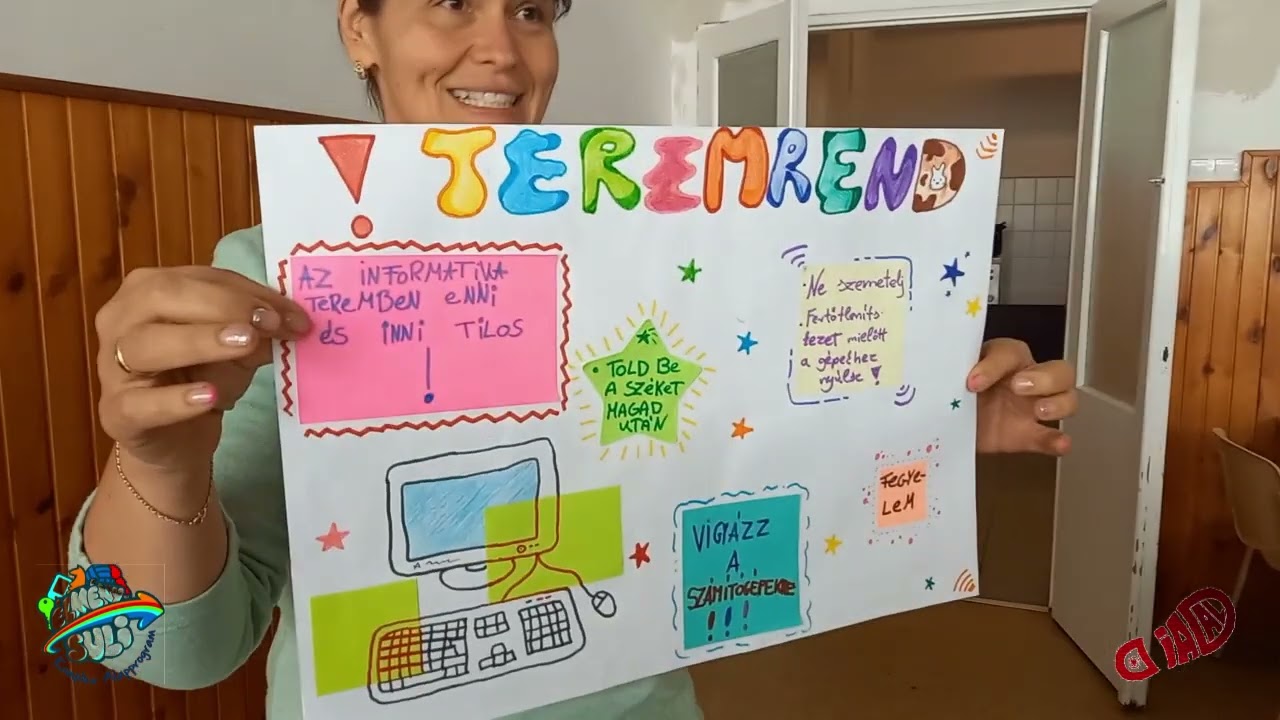 ! TEREMREND
AZ INFORMATIKA
TEREMBEN ENNI
és INNI TILOS
!
• TOLD Be
A SZÉKET
MAGAD
UTÁN
• Ne szemetelj
• Fertőtleníts
kezet mielőtt
a gépekhez
nyúlsz !
VIGYÁZZ
A
SZÁMÍTÓGÉPEKRE
!!!
FEGYE-
LeM
SULI